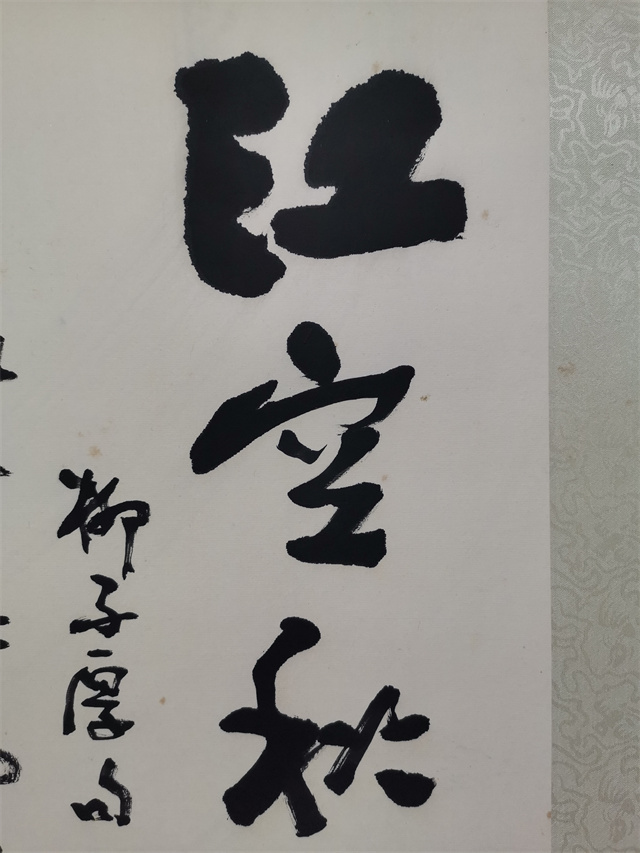 江空秋
柳子厚句